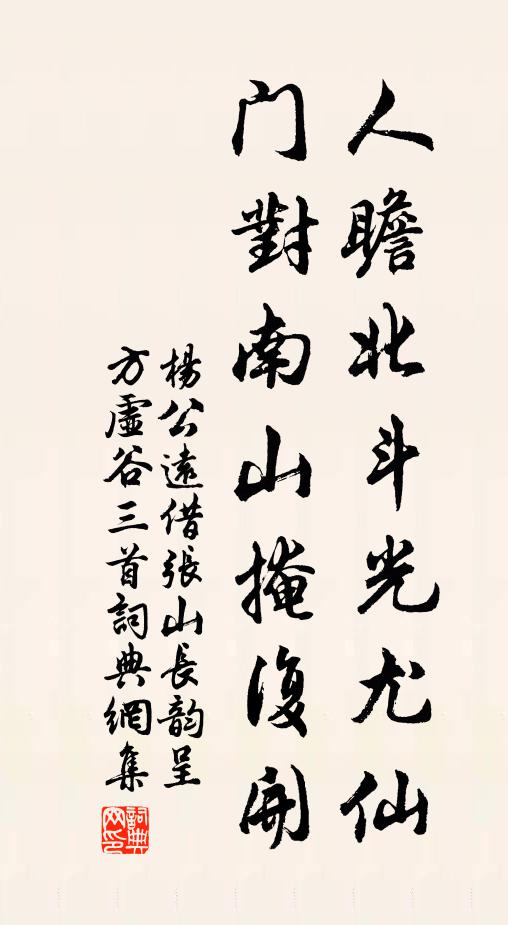 人瞻北斗光尤仙
门對南山掩復開
楊公遠借張山長韵呈
方虛谷三首詞典網集
詞典
网印